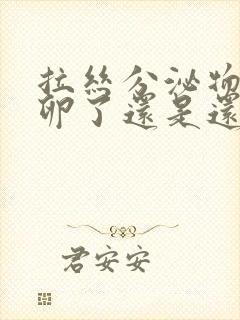 拉絲分泌物
卵了還是還
君安安